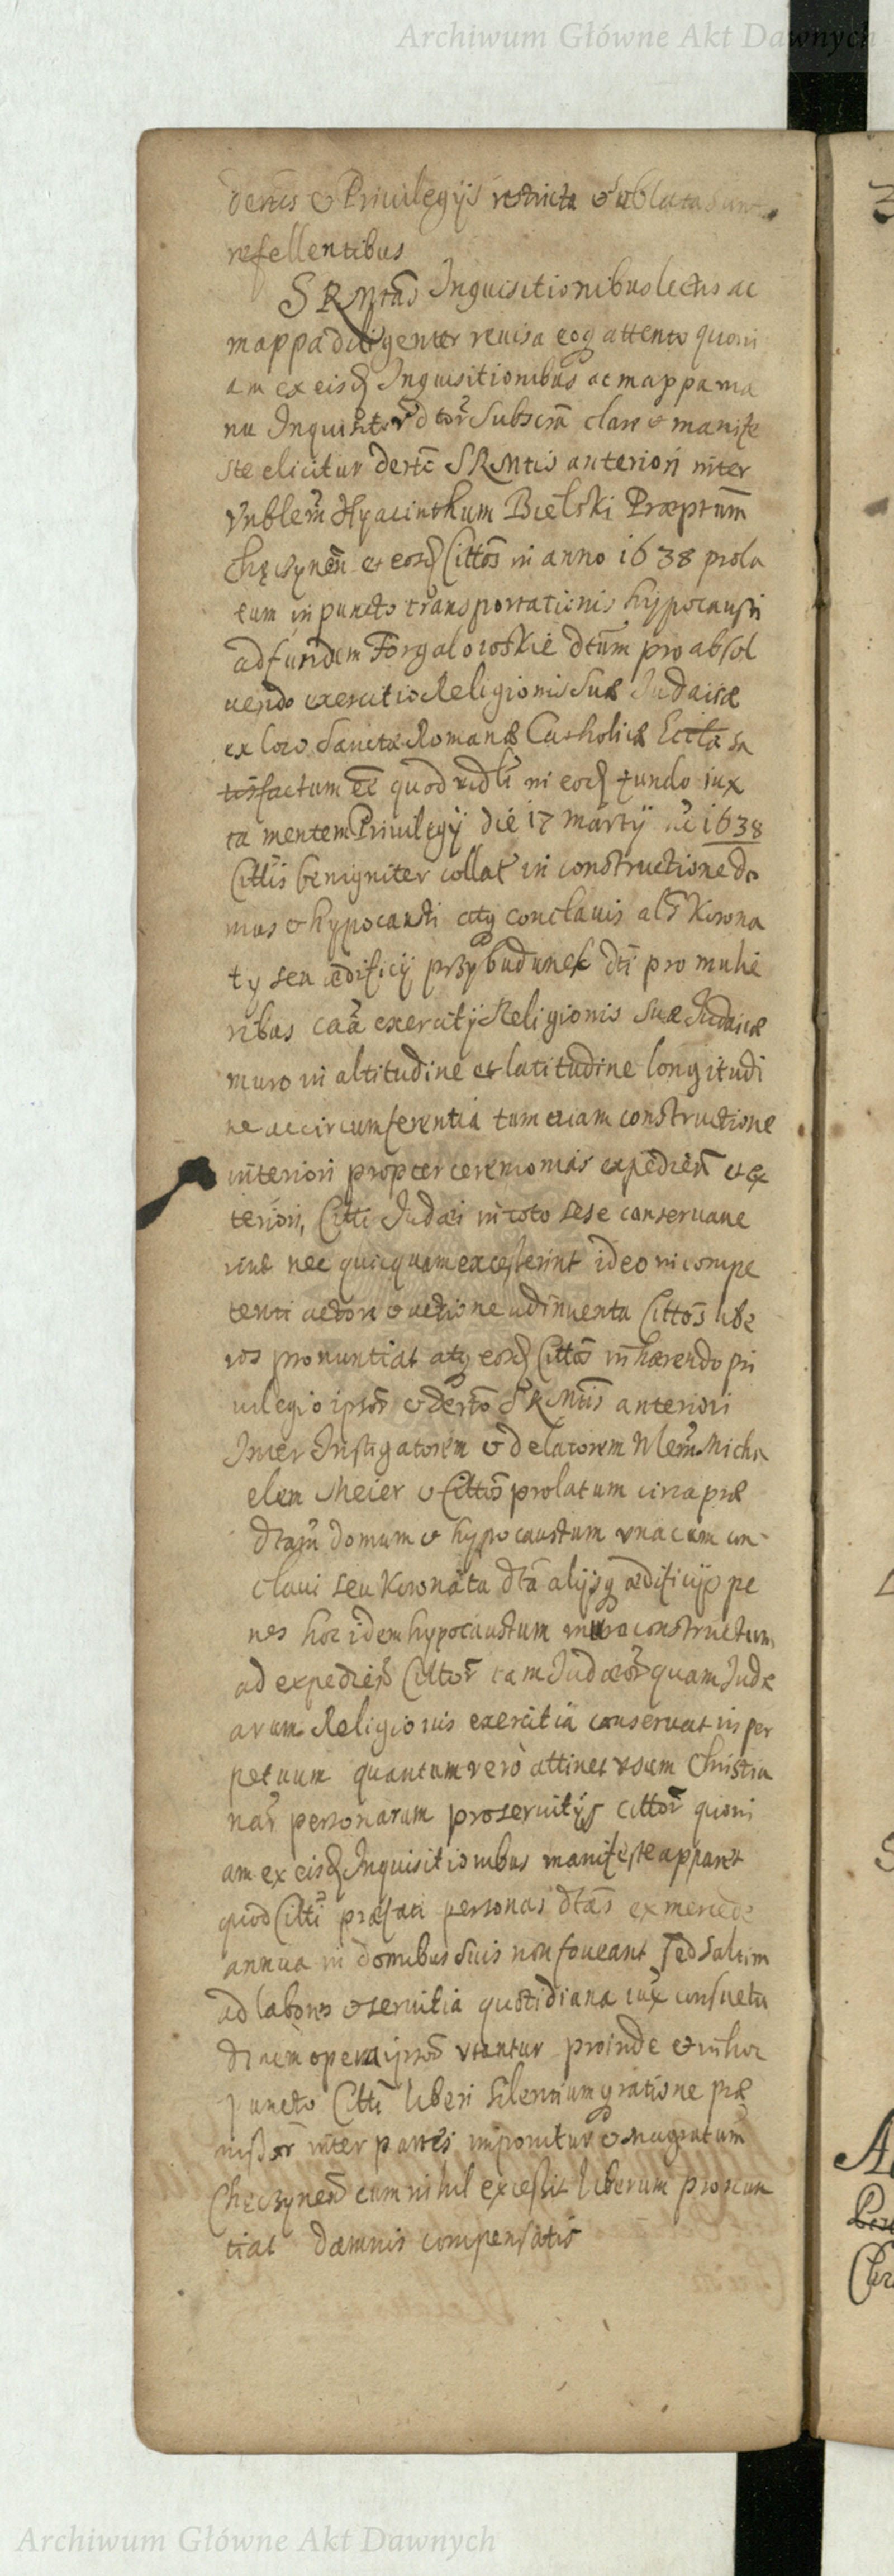 Archiwum Główne Akt Dawnych
Privilegijs restricta & sublata
refellentibus
S R Mtas Inquisitionibus lectis ac
mappa diligenter reuisa eoq attento quoni
am ex eisd Inquisitionibus ac mappa ma
nu Inquisitor dtor Subscra clare & manife
ste elicitur derti SRMtis anteriori inter
Vnblem Hyacinthum Bielski Præptum
Chęcynen et eosd Cittos in anno 1638 prola
tum in puncto transportationis hypocausti
ad fundum dtum pro absol
uendo exercitio Religionis Suæ Judaicæ
ex loco Sanctæ Romanæ Catholicæ Ecclæ sa
tisfactum ee quod vidlt in eod fundo iux
ta mentem Privilegij die 17 Martij 1638
Cittis benigniter collat in constructione do
mus & hypocausti atq conclauis als Krona
ty seu ædificij przybudunek dti pro mulie
ribus caa exercitij Religionis suæ Judaicæ
muro in altitudine et latitudine longitudi
ne ac circumferentia tum etiam constructione
interiori propter ceremonias expedien et ex
teriori, Citti Judæi in toto sese conseruaue
rint nec quicquam excesserint ideo incompe
tenti actori & actione adinuenta Cittos libe
ros pronuntiat atq eosd Cittos inhærendo pri
uilegio ipsor & derto S R Mtis anteriori
Inter Instigatorem & delatorem Micha
elem Meier & Cittos prolatum circa præ
dtam domum & hypocaustum vna cum con
claui seu Kronata dta alijsq ædificijs pe
nes hoc idem hypocaustum muro constructum
ad expedien Cittor tam Judæor quam Judæ
arum Religionis exercitia conseruat in per
petuum quantum vero attinet vsum Christia
nar personarum pro seruitijs cittor quoni
am ex eisd Inquisitionibus manifeste apparet
quod Citti præfati personas dtas ex mercede
annua in domibus suis non foueant sed saltim
ad labores & seruitia quotidiana iux consuetu
dinem opera ipsor vtantur proinde & in hoc
puncto Citti liberi silentiumq ratione præ
missor inter partes imponitur & Magratum
Checzynen cum nihil excessit liberum pronun
tiat damnis compensatis
Archiwum Główne Akt Dawnych